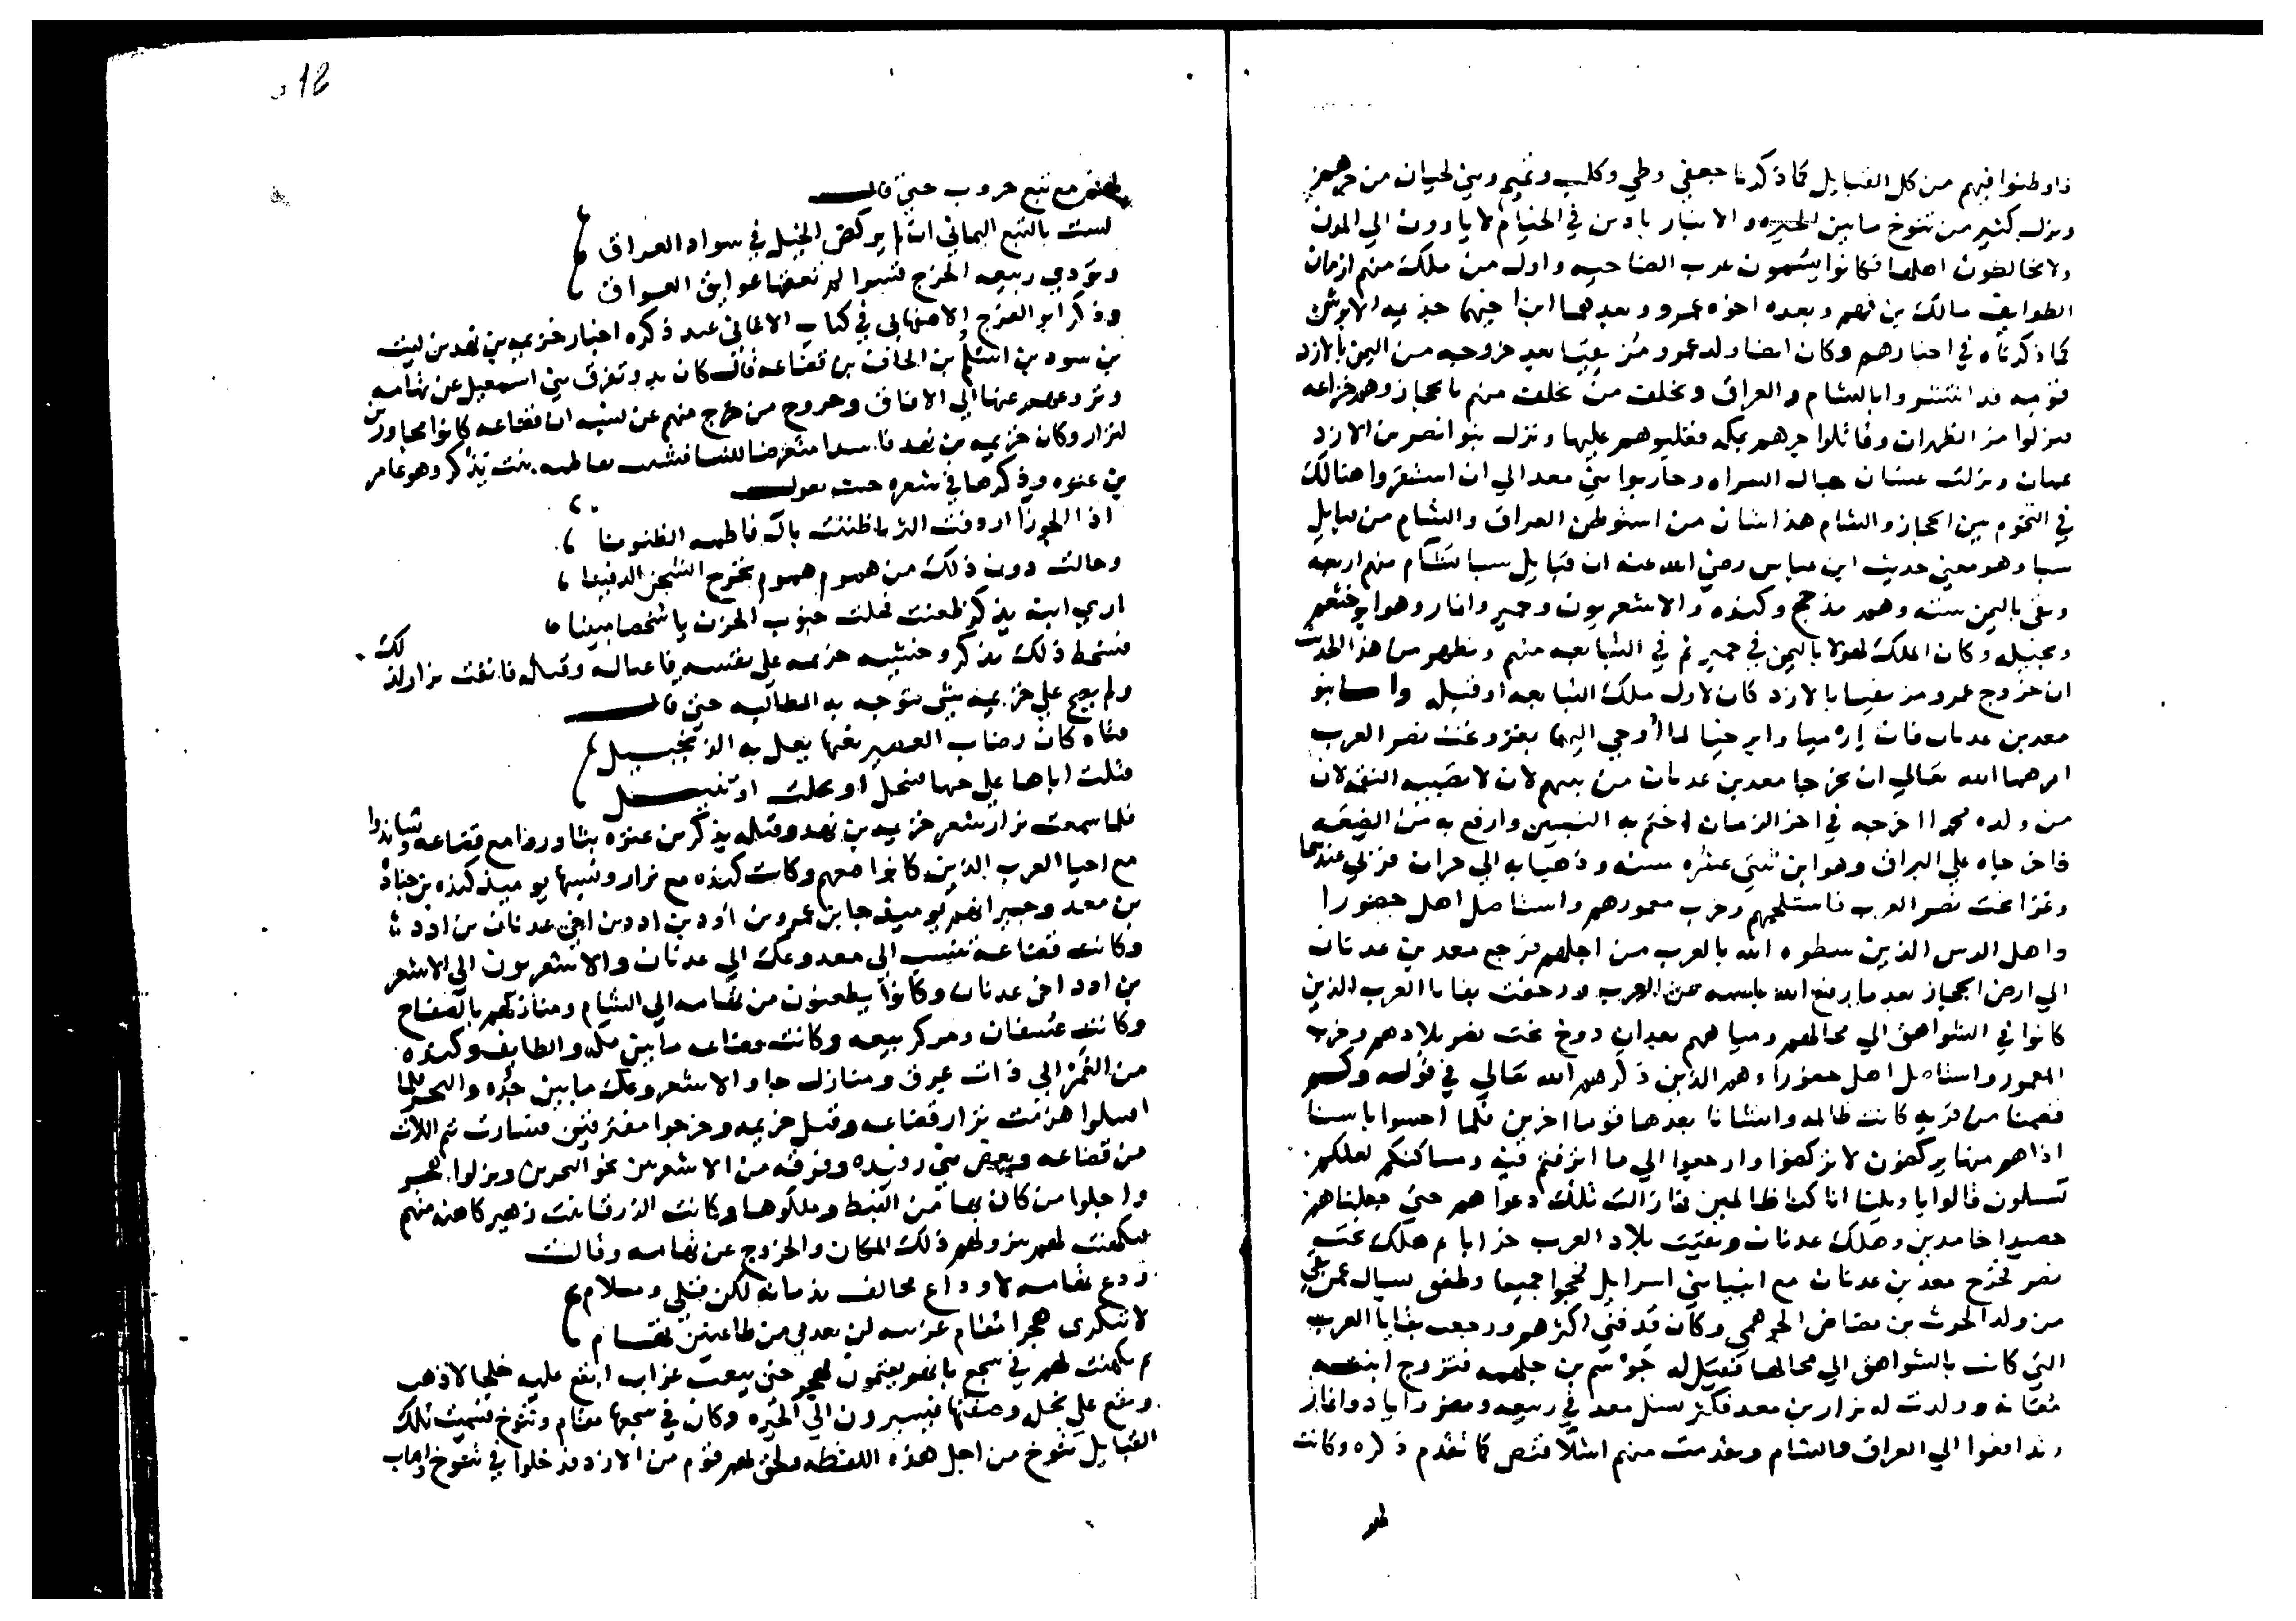 فاوطنوا فيهم من كل القبايل كما ذكرنا جعفي وطي وكلب وتميم وبني لحيان من جرهم
ونزل كثير من تنوخ ما بين الحيره والانبار بادين في الخيام لا ياوون الي المدن
ولا يخالطون اهلها فكانوا يسمون عرب الضاحيه واول من ملك منهم ازمان
الطوايف مالك بن فهم وبعده اخوه عمرو وبعدهما ابن اخيهما جذيمه الابرش
كما ذكرناه في اخبارهم وكان ايضا ولد عمرو مزيقيا بعد خروجه من اليمن بالازد
قومه قد انتشروا بالشام والعراق وتخلف من تخلف منهم بالحجاز وهم خزاعه
فنزلوا مر الظهران وقاتلوا جرهم بمكه فغلبوهم عليها ونزل بنوا نصر بن الازد
عمان ونزلت غسان جبال السراه وحاربوا بني معد الي ان استقروا هنالك
في التخوم بين الحجاز والشام هذا شان من استوطن العراق والشام من قبايل
سبا وهو معني حديث ابن عباس رضي الله عنه ان قبايل سبا تشام منهم اربعه
وبقي باليمن سته وهم مذحج وكنده والاشعريون وحمير وانمار وهو ابو خثعم
وبجيله وكان الملك لهولا باليمن في حمير ثم في التبابعه منهم ويظهر من هذا الحديث
ان خروج عمرو مزيقيا بالازد كان لاول ملك التبابعه او قبله واما بنو
معد بن عدنان فان إرميا وابرخيا لما أوحي اليهما بغزو بخت نصر العرب
امرهما الله تعالي ان يخرجا معد بن عدنان من بينهم لان لا تصيبه النقمه لان
من ولده محمدا اخرجه في اخر الزمان اختم به النبيين وارفع به من الضعه
فاخرجاه علي البراق وهو ابن ثنتي عشره سنه وذهبا به الي حران فربي عندهما
وغزا بخت نصر العرب فاستلحمهم وخرب معمورهم واستاصل اهل حضورا
واهل الرس الذين سطوه الله بالعرب من اجلهم فرجع معد بن عدنان
الي ارض الحجاز بعد ما رفع الله باسه عن العرب ورجعت بقايا العرب الذين
كانوا في الشواهق الي محالهم ومياههم بعد ان دوخ بخت نصر بلادهم وخرب
المعمور واستاصل اهل حضورا وهم الذين ذكرهم الله تعالي في قوله وكم
قصمنا من قريه كانت ظالمه وانشانا بعدها قوما اخرين فلما احسوا باسنا
اذا هم منها يركضون لا تركضوا وارجعوا الي ما اترفتم فيه ومساكنكم لعلكم
تسلون قالوا يا ويلنا انا كنا ظالمين فما زالت تلك دعواهم حتي جعلناهم
حصيدا خامدين وهلك عدنان وبقيت بلاد العرب خرابا ثم هلك بخت
نصر فخرج معد بن عدنان مع انبيا بني اسرايل فحجوا جميعا وطفق يسال عمن بقي
من ولد الحرث بن مضاض الجرهمي وكان قد فني اكثرهم ورجعت بقايا العرب
التي كانت بالشواهق الي محالها فقيل له جوشم بن جلهمه فتزوج ابنته
معانه وولدت له نزار بن معد فكثر نسل معد في ربيعه ومضر واياد وانمار
وتدافعوا الي العراق والشام وتقدمت منهم اشلا قنص كما تقدم ذكره وكانت
لهم
لهم مع تبع حروب حتي قال
لست بالتبع اليماني ان لم يركض الخيل في سواد العراق
وتودي ربيعه الخرج قسرا لم تعقها عوايق العواق
وذكر ابو الفرج الاصبهاني في كتاب الاغاني عند ذكره اخبار خزيمه بن نهد بن ليث
بن سود بن اسلم بن الحاف بن قضاعه قال كان بدو تفرق بني اسمعيل عن تهامه
ونزوعهم عنها الي الافاق وخروج من خرج منهم عن نسبه ان قضاعه كانوا مجاورين
لنزار وكان خزيمه بن نهد فاسدا متعرضا للنسا فشبب بفاطمه بنت يذكر وهو عامر
بن عنزه وذكرها في شعره حيث يقول
اذا الجوزا اردفت الثريا ظننت بال فاطمه الظنونا
وحالت دون ذلك من همومي هموم تخرج الشجن الدفينا
اري ابنة يذكر ظعنت فحلت جنوب الحزن يا شحطا مبينا
فسخط ذلك يذكر وخشيه خزيمه علي نفسه فاغتاله وقتله فانفت نزار لذلك
ولم يصح علي خزيمه شي تتوجه به المطالبه حتي قال
فتاه كان رضاب العصير بفيها يعل به الزنجبيل
قتلت اباها علي حبها فتبخل او بخلت او تنيل
فلما سمعت نزار شعر خزيمه بن نهد وقتله يذكر بن عنزه بثاوروا مع قضاعه وتساندوا
مع احيا العرب الذين كانوا معهم وكانت كنده مع نزار ونسبها يوميذ كنده بن جناده
بن معد وجيرانهم يوميذ حا بن عمرو بن ادد بن ادد بن اخي عدنان بن ادد
وكانت قضاعه تنتسب الي معد وعك الي عدنان والاشعريون الي الاشعر
بن ادد اخي عدنان وكانوا يظعنون من تهامه الي الشام ومنازلهم بالصفاح
وكانت عسفان ومر كر ربيعه وكانت قضاعه ما بين مكه والطايف وكنده
من الغمر الي ذات عرق ومنازل حا والاشعر وعك ما بين جده والبحر فلما
اقتتلوا هزمت نزار قضاعه وقتل خزيمه وخرجوا مفترقين فسارت تيم اللات
من قضاعه وبعض بني رفيده وفرقه من الاشعريين نحو البحرين ونزلوا هجر
واجلوا من كان بها من النبط وملكوها وكانت الزرقا بنت زهير كاهنه منهم
فتكهنت لهم بنزولهم ذلك المكان والخروج عن تهامه وقالت
ودع تهامه لا وداع مخالف بذمامه لكن قلي وسلام
لا تنكري هجرا مقام غريبه لن تعدمي من ظاعنين تهام
ثم تكهنت لهم في سجع بانهم يقيمون بهجر حتي ينعت غراب ابقع عليه خلخالا ذهب
ويقع علي نخله وصفتها فيسيرون الي الحيره وكان في سجعها مقام وتنوخ فسميت تلك
القبايل تنوخ من اجل هذه اللفظه ولحق بهم قوم من الازد فدخلوا في تنوخ واصاب